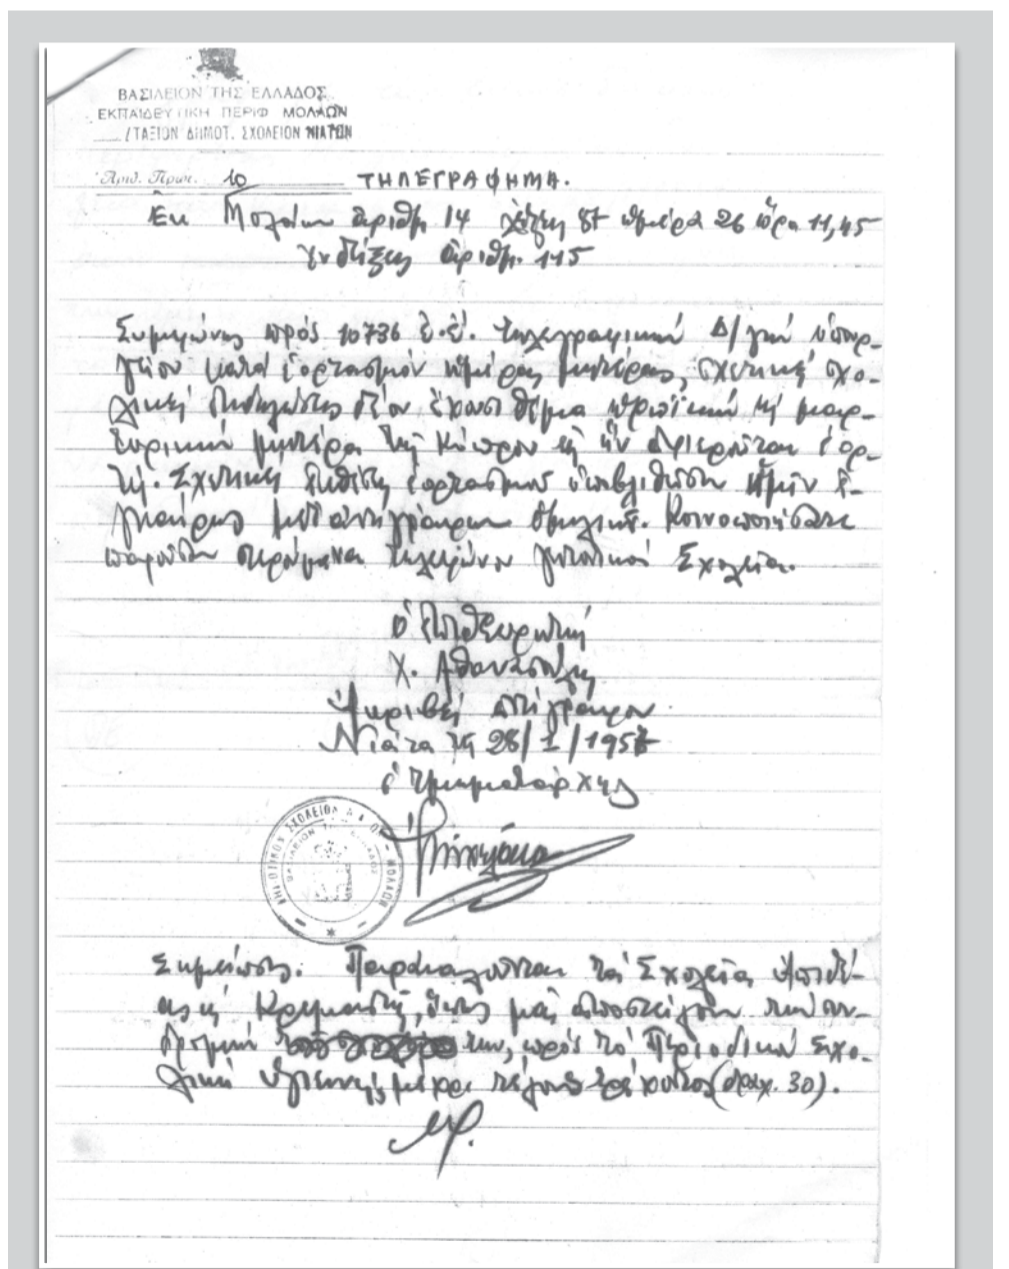 ΒΑΣΙΛΕΙΟΝ ΤΗΣ ΕΛΛΑΔΟΣ
ΕΚΠΑΙΔΕΥΤΙΚΗ ΠΕΡΙΦ ΜΟΛΑΩΝ
/ΤΑΞΙΟΝ ΔΗΜΟΤ. ΣΧΟΛΕΙΟΝ ΝΙΑΤΩΝ
Ἀριθ. Πρωτ. 10 ΤΗΛΕΓΡΑΦΗΜΑ.
Ἐκ Μολάων ἀριθμ. 14 λέξεις 87 ἡμέρα 26 ὥρα 11,45
ἐνδείξεις ἀριθμ. 115
Συμφώνως πρός 10736 ἐ.ἔ. τηλεγραφικήν Δ/γήν ὑπουρ-
γείου κατά ἑορτασμόν ἡμέρας μητέρας, σχετικαί σχο-
λικαί ἐκδηλώσεις δέον ἔχωσι θέμα ἡρωϊκήν καί μαρ-
τυρικήν μητέρα τῆς Κύπρου εἰς ἥν ἀφιεροῦται ἑορ-
τή. Σχετικαί ἐκθέσεις ἑορτασμοῦ ὑποβληθῶσιν ἡμῖν ἐ-
γκαίρως μετά ἀντιγράφων ὁμιλιῶν. Κοινοποιήσατε
παροῦσαν τηλεφώνου γειτονικά Σχολεῖα.
ὁ Ἐπιθεωρητής
Χ. Ἀθανασούλης
Ἀκριβές ἀντίγραφον
Νιάτα τῇ 28/1/1957
ὁ Τμηματάρχης
ΔΗΜΟΤΙΚΟΝ ΣΧΟΛΕΙΟΝ ΜΟΛΑΩΝ
Σημείωσις. Παρακαλοῦνται τά Σχολεῖα Ἀπιδέ-
ας καί Κρεμαστῆς, ὅπως μᾶς ἀποστείλουν τήν συν-
δρομήν των, πρός τό Περιοδικόν Σχο-
λική Ὑγιεινή, μέχρι τέλους τρέχοντος (δραχ. 30).